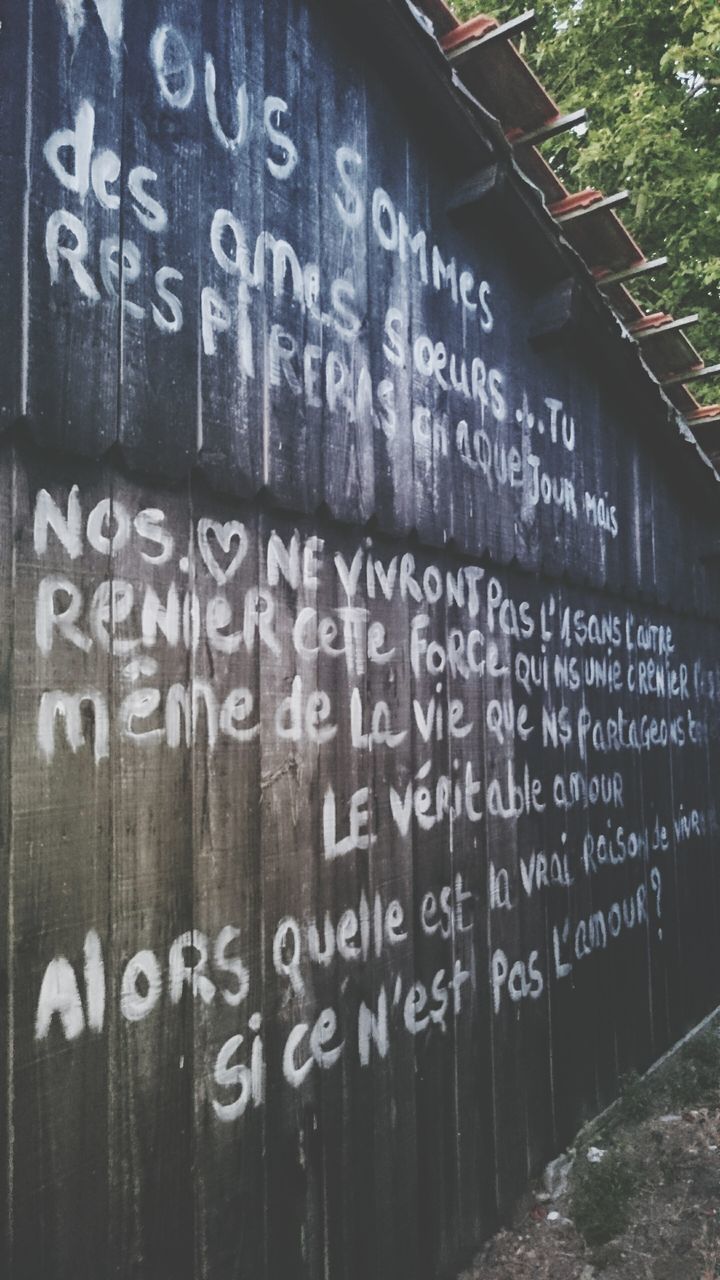 NOUS SOMMes
des ames sœurs ... TU
ResPIRERAS CHAQUe JOUR mais
NOS. ♡ NE VIVRONT PAS L'1 SANS L'AUTRE
ReNieR CeTTe FORCe QUI NS UNIE C RENIER
même de La vie que NS PaRtageoNs
LE VéRitable amour
AlORS Quelle est la VRAi Raison de vivre
Si ce N'est Pas L'amouR ?